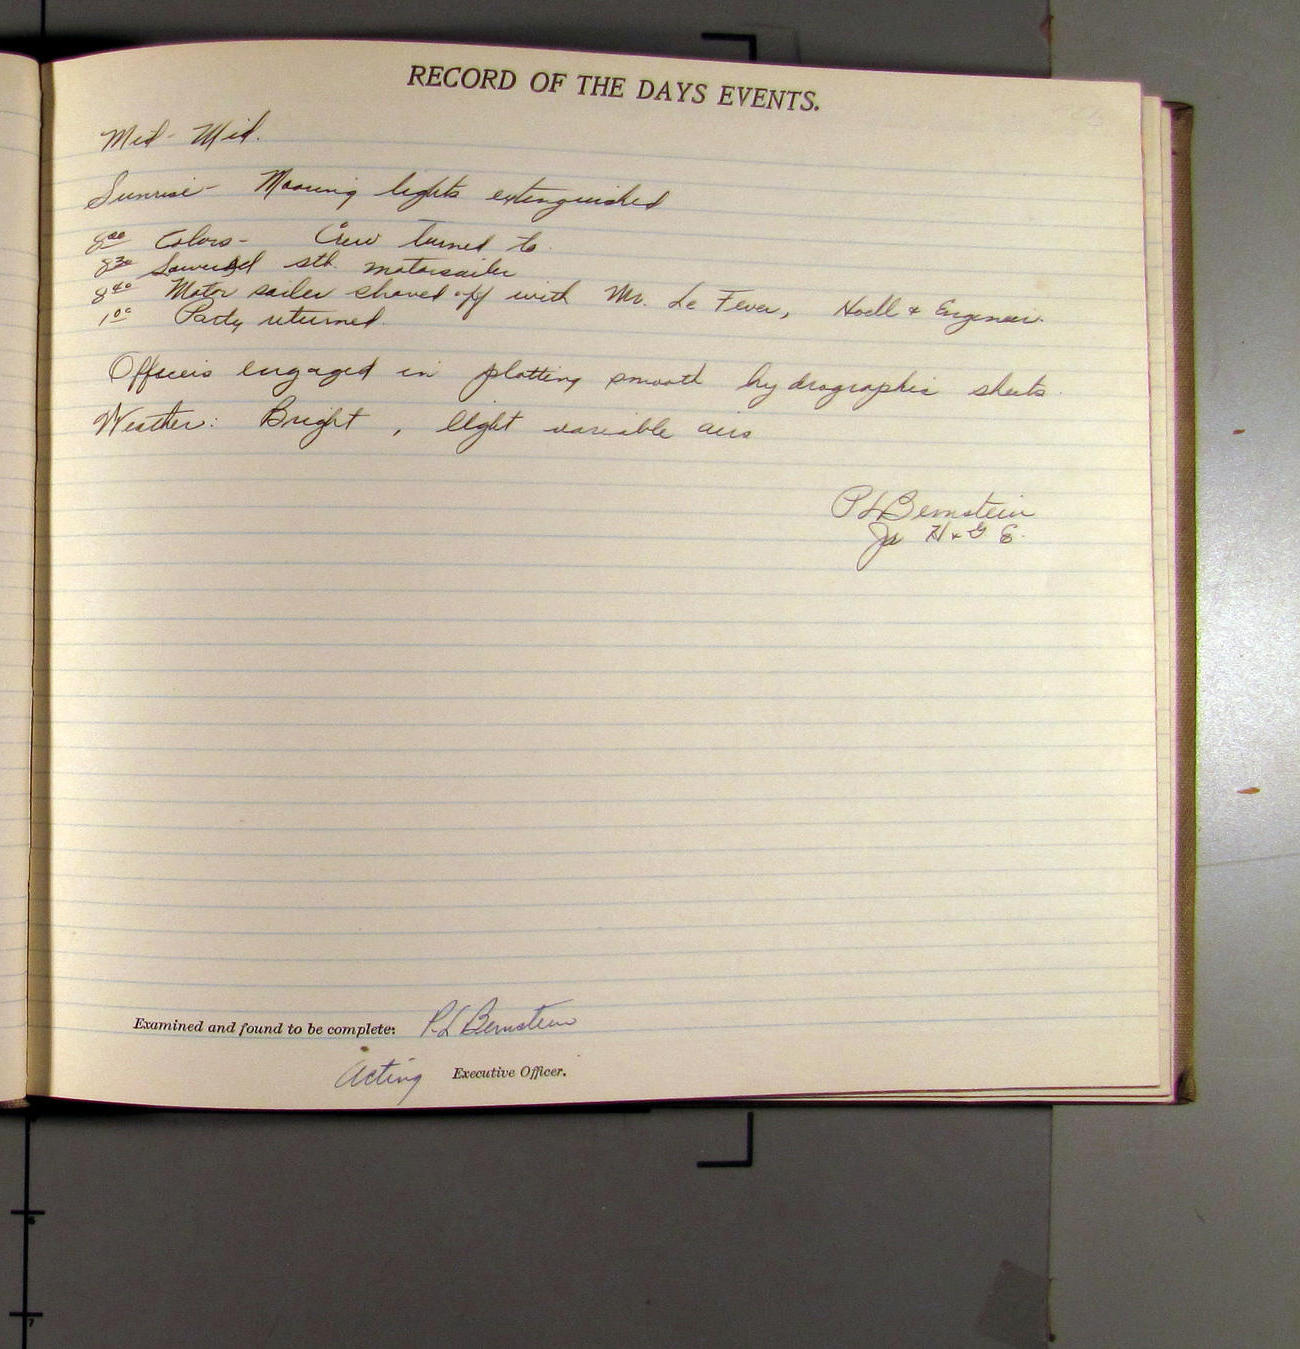 RECORD OF THE DAYS EVENTS.
Mid - Mid.
Sunrise - Mooring lights extinguished
8⁰⁰ Colors - Crew turned to.
8³⁰ Lowered stb. motorsailer
8⁴⁰ Motor sailer shoved off with Mr. Le Fever, & Engineer.
1⁰⁰ Party returned.
Officers engaged in plotting smooth hydrographic sheets.
Weather: Bright, light variable airs
P L Bernstein
Jr H & G E.
Examined and found to be complete: P. L Bernstein
Acting Executive Officer.
6
7